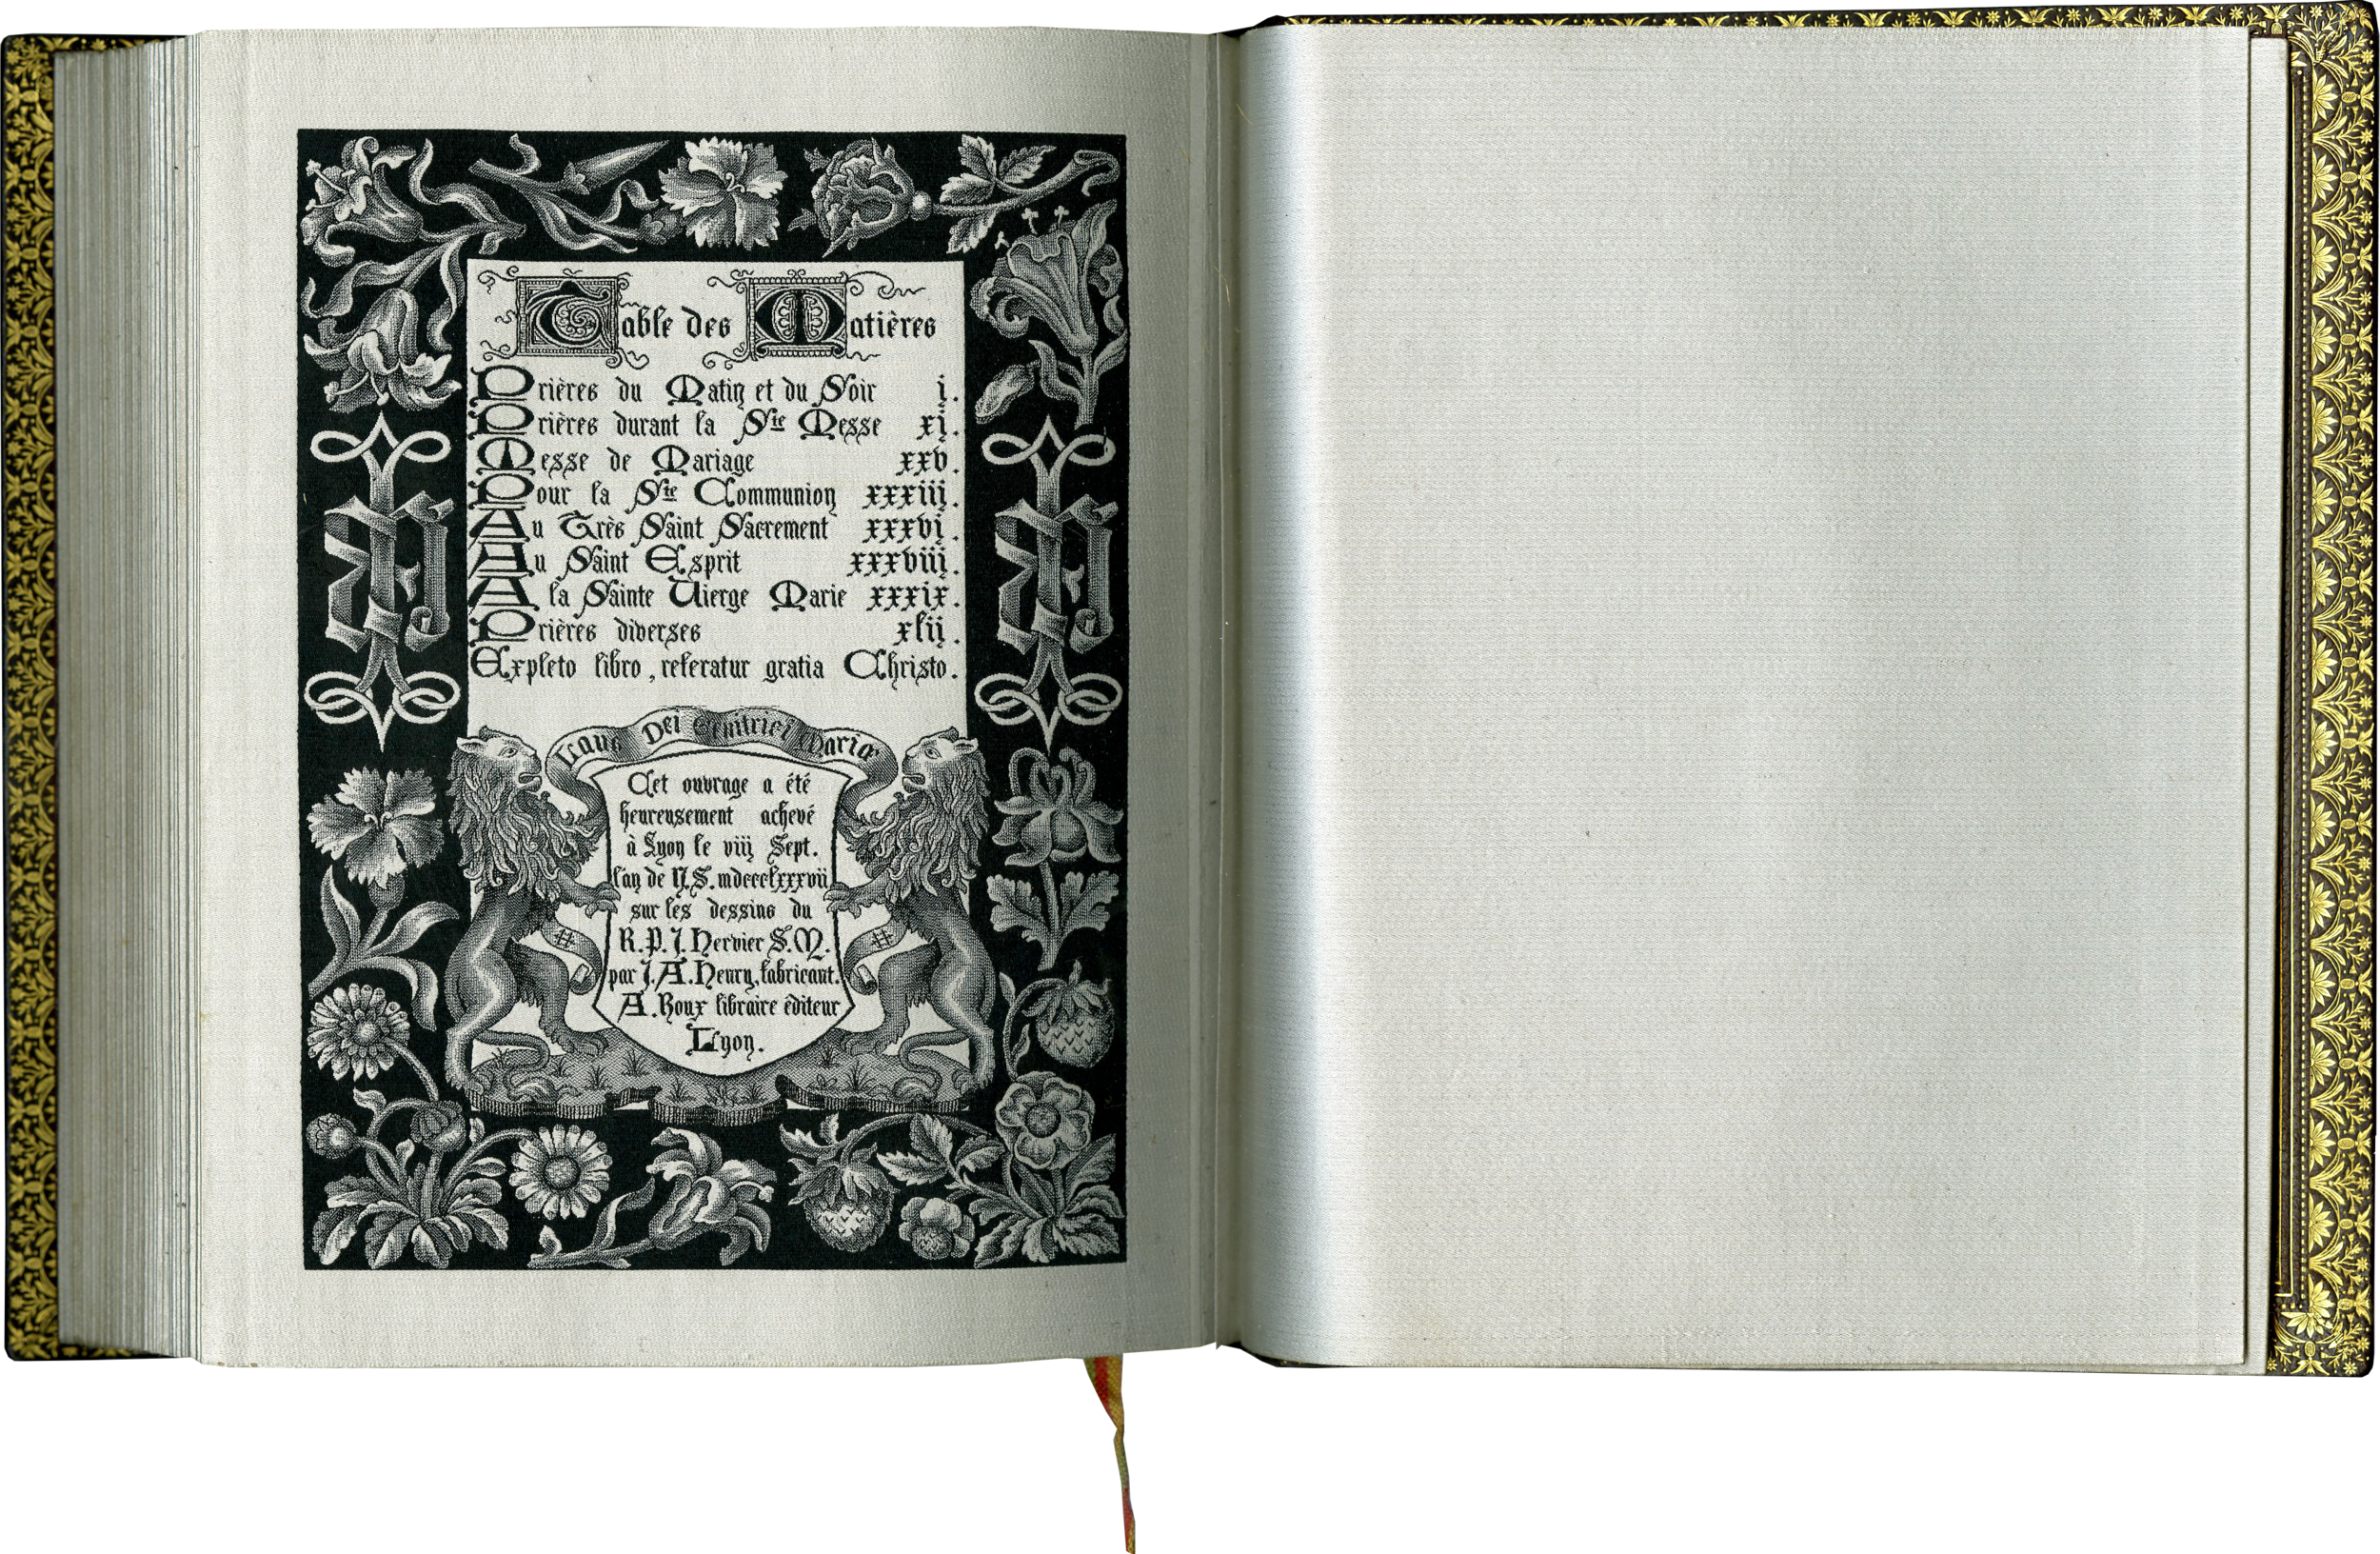 Table des Matières
Prières du Matin et du Soir i.
Prières durant la Ste Messe xi.
Messe de Mariage xxv.
Pour la Ste Communion xxxiii.
Au Très Saint Sacrement xxxvi.
Au Saint Esprit xxxviii.
A la Sainte Vierge Marie xxxix.
Prières diverses xlii.
Expleto libro, referatur gratia Christo.
Laus Dei Genitrici Mariæ
Cet ouvrage a été
heureusement achevé
à Lyon le viii Sept.
l'an de N.S. mdccclxxxvii
sur les dessins du
R.P.J. Hervier S.M.
par J.A. Henry, fabricant.
A. Roux libraire éditeur
Lyon.